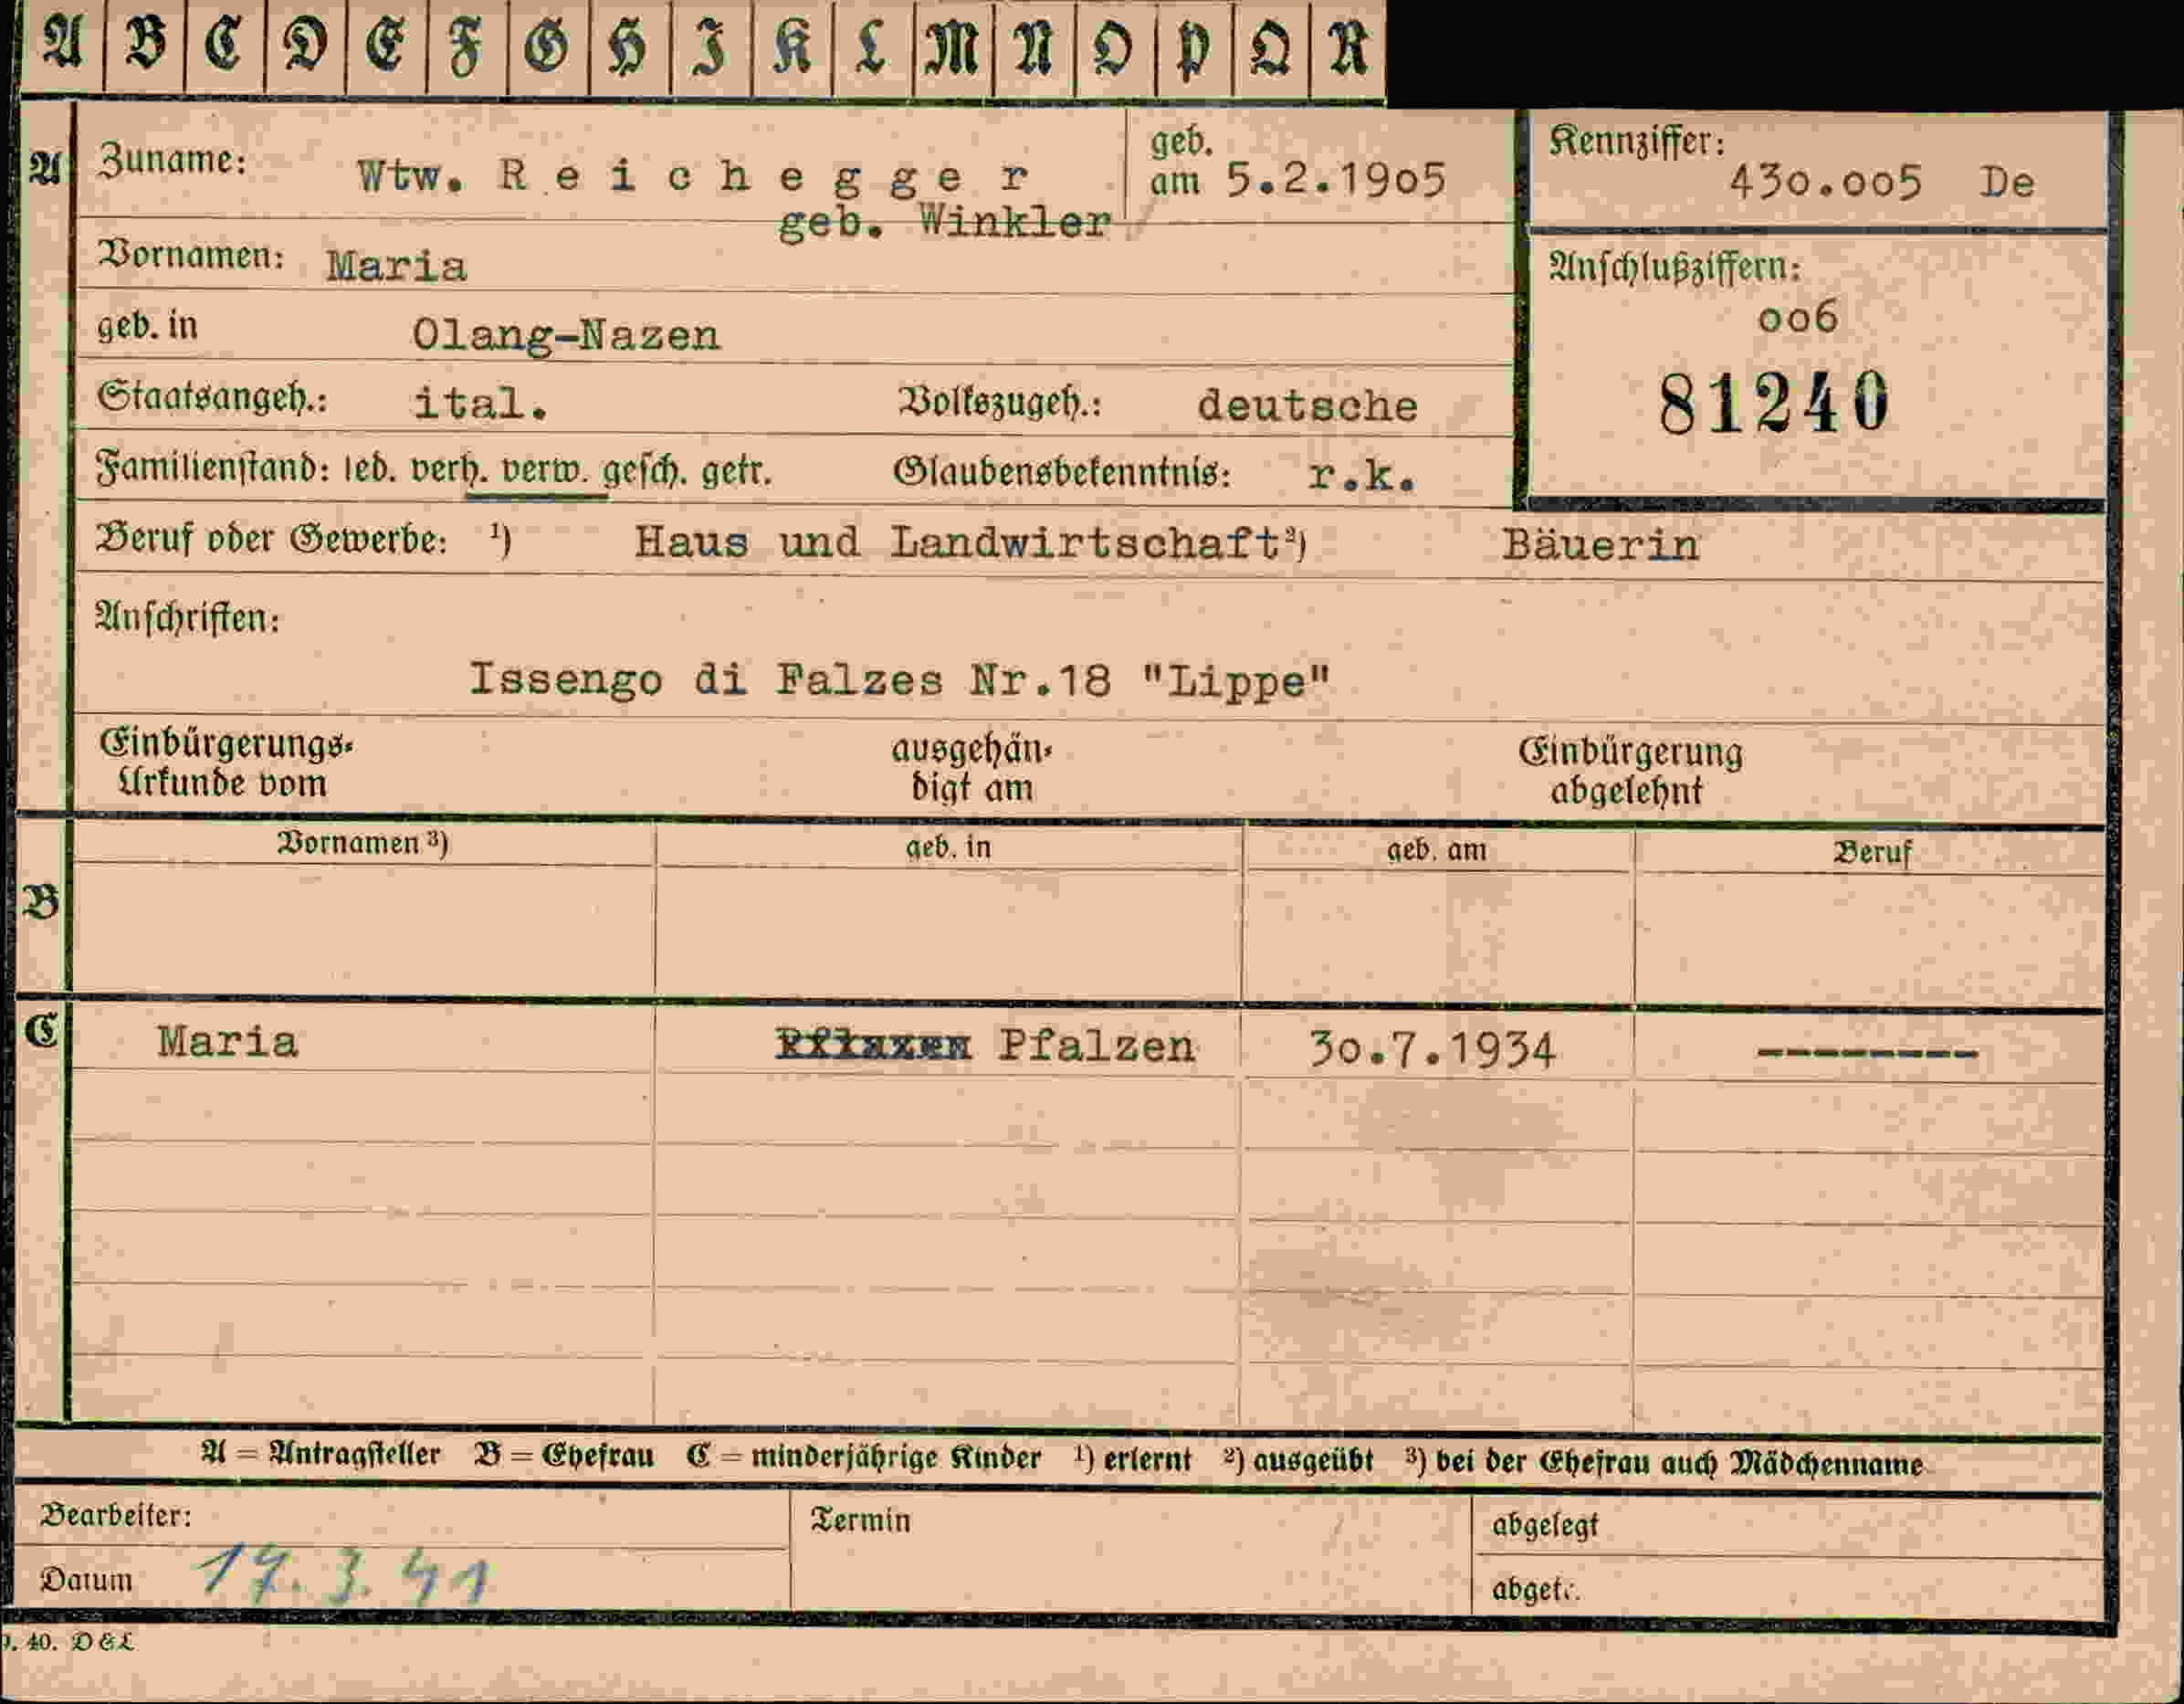 A B C D E F G H I K L M N O P Q R
A Zuname: Wtw. Reichegger geb. am 5.2.1905
geb. Winkler
Kennziffer: 430.005 De
Vornamen: Maria
Anschlußziffern:
006
81240
geb. in Olang-Nazen
Staatsangeh.: ital. Volkszugeh.: deutsche
Familienstand: led. verh. verw. gesch. getr. Glaubensbekenntnis: r.k.
Beruf oder Gewerbe: ¹) Haus und Landwirtschaft ²) Bäuerin
Anschriften:
Issengo di Falzes Nr.18 "Lippe"
Einbürgerungs- ausgehän- Einbürgerung
Urkunde vom digt am abgelehnt
Vornamen ³) geb. in geb. am Beruf
B
C Maria Pfalzen 30.7.1934 --------
A = Antragsteller B = Ehefrau C = minderjährige Kinder ¹) erlernt ²) ausgeübt ³) bei der Ehefrau auch Mädchenname
Bearbeiter: Termin abgelegt
Datum 17.3.41
40. D & L